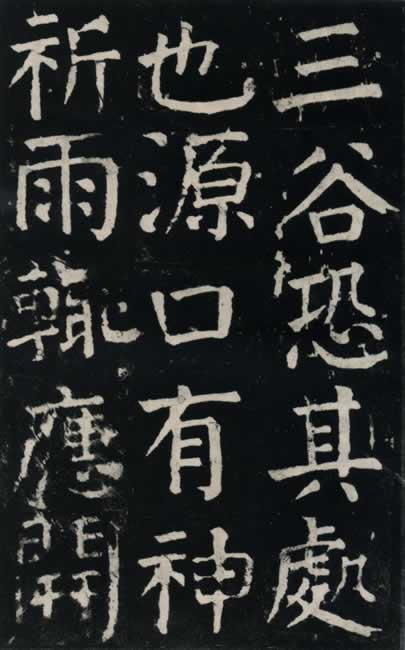 三谷恐其處
也源口有神
祈雨輙應開